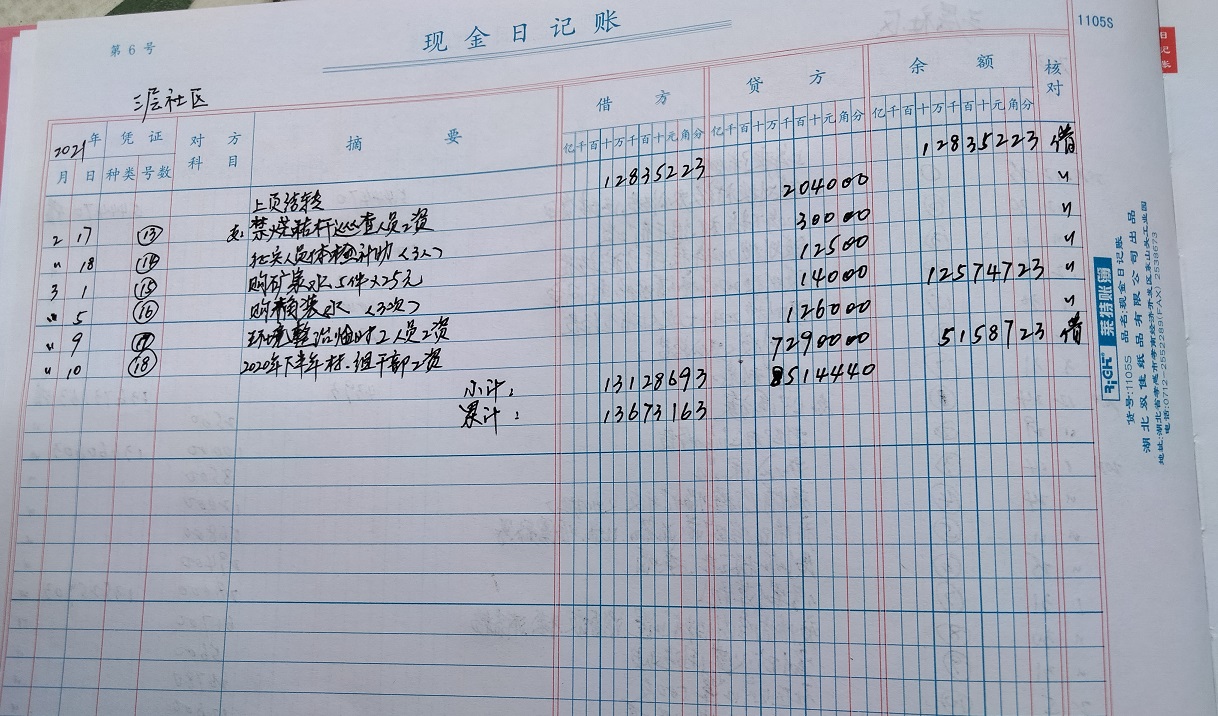 第 6 号
现金日记账
1105S
三层社区
2021年 凭证 对方 摘要 借方 贷方 余额 核对
月 日 种类 号数 科目 亿千百十万千百十元角分 亿千百十万千百十元角分 亿千百十万千百十元角分
上页结转 12835223 12835223 借
2 17 ⑬ 禁烧秸秆巡查人员工资 204000 〃
〃 18 ⑭ 征兵人员体检补助（3人） 30000 〃
3 1 ⑮ 购矿泉水5件×25元 12500 〃
〃 5 ⑯ 购桶装水（3次） 14000 12574723 〃
〃 9 ⑰ 环境整治临时工人员工资 126000 〃
〃 10 ⑱ 2020年下半年村.组干部工资 7290000 5158723 借
小计： 13128693 8514440
累计： 13673163
RiGH 莱特账簿
货号:1105S 品名:现金日记账
湖北双佳纸品有限公司出品
电话:0712-2552289(FAX) 2538673
日记账